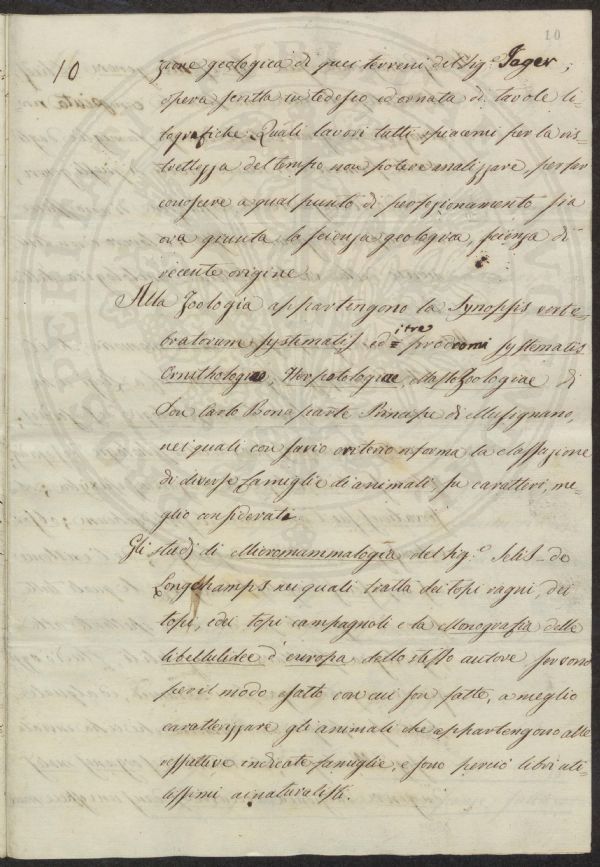 10
10
zione geologica di quei terreni del Sig.r Jager;
opera scritta in tedesco ed ornata di tavole li-
tografiche. Quali lavori tutti spiacemi per la ris-
trettezza del tempo non potere analizzare, per far
conoscere a qual punto di perfezionamento sia
ora giunta la scienza geologica, scienza di
recente origine
Alla Zoologia appartengono la Synopsis verte-
bratorum systematis ed i tre prodromi systematis
Ornithologiae, Herpetologiae, Mastozoologiae di
Don Carlo Bonaparte Principe di Musignano,
nei quali con savio criterio riforma la classazione
di diverse famiglie di animali su caratteri, me-
glio considerati.
Gli studj di Micromammalogia del Sig.r Selis-de
Longchamps nei quali tratta dei topi ragni, dei
topi, e dei topi campagnoli e la Monografia delle
libellulidee d'europa dello stesso autore servono
per il modo esatto con cui son fatte, a meglio
caratterizzare gli animali che appartengono alle
rispettive indicate famiglie, e sono perciò libri uti-
lissimi ai naturalisti.